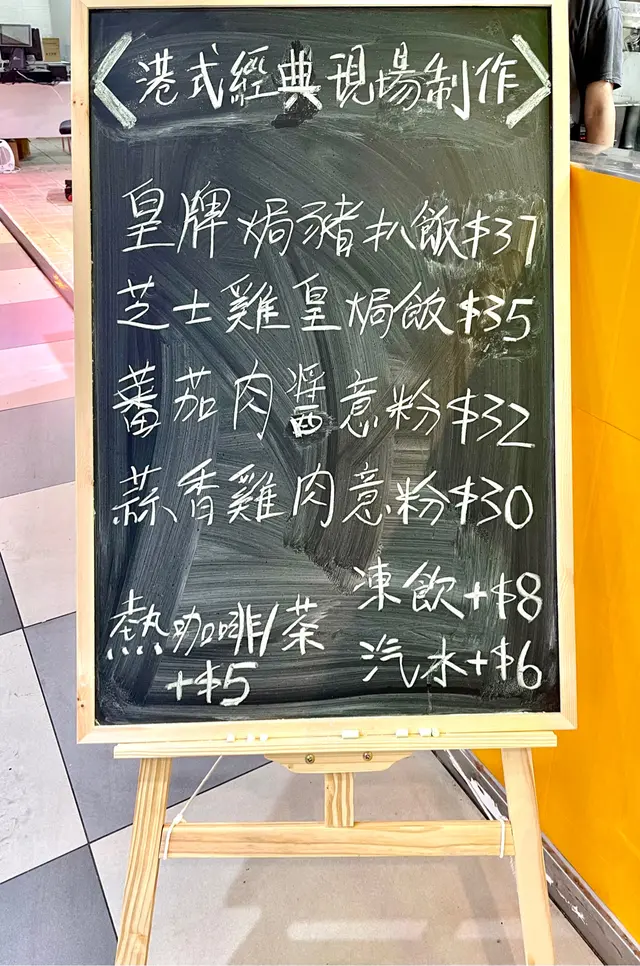 〈港式經典現場制作〉
皇牌焗豬扒飯$37
芝士雞皇焗飯$35
蕃茄肉醬意粉$32
蒜香雞肉意粉$30
熱咖啡/茶
+$5
凍飲+$8
汽水+$6